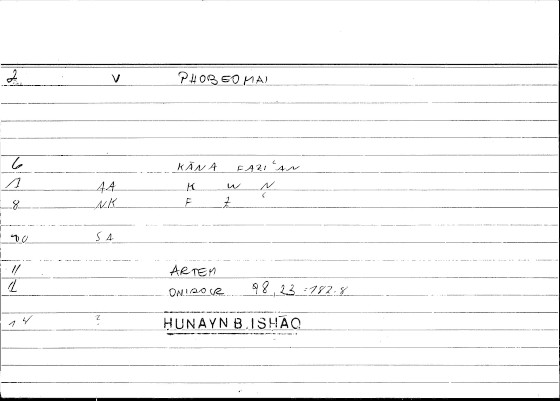 2 V PHOBEOMAI
6 KĀNA FAZIʿAN
7 AA K W N
8 NK F Z ʿ
10 SA
11 ARTEM
12 ONIROCR 98,23 = 182.8
14 ? HUNAYN B. ISHĀQ